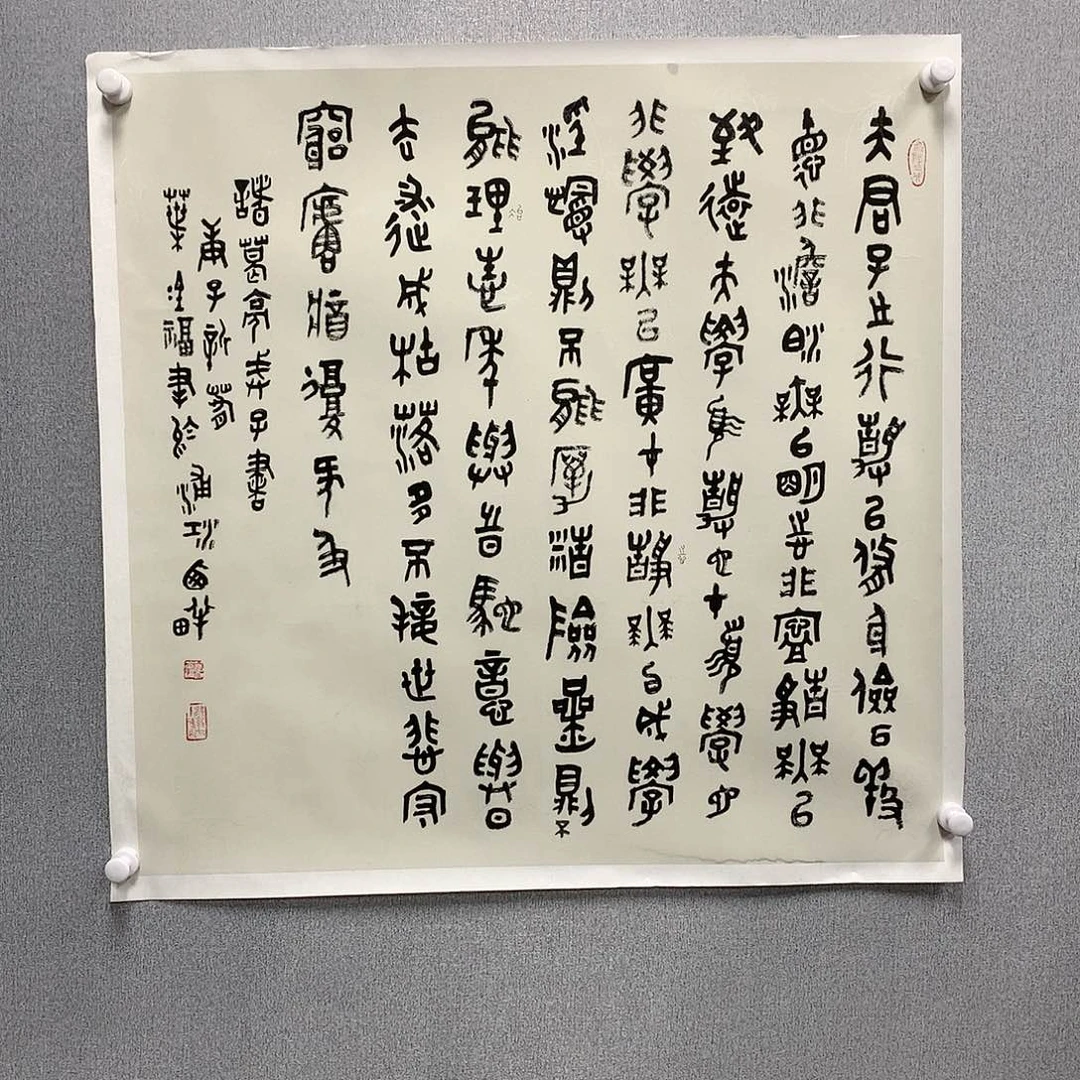 夫君子之行靜以修身儉以養
德非澹泊無以明志非寧靜無以
致遠夫學須靜也才須學也
非學無以廣才非靜無以成學
淫慢則不能厲精險躁則不
能理性年與時馳意與日
去遂成枯落多不接世悲守
窮廬將復何及
諸葛亮誡子書
庚子新春
葉 福書於浦江西畔